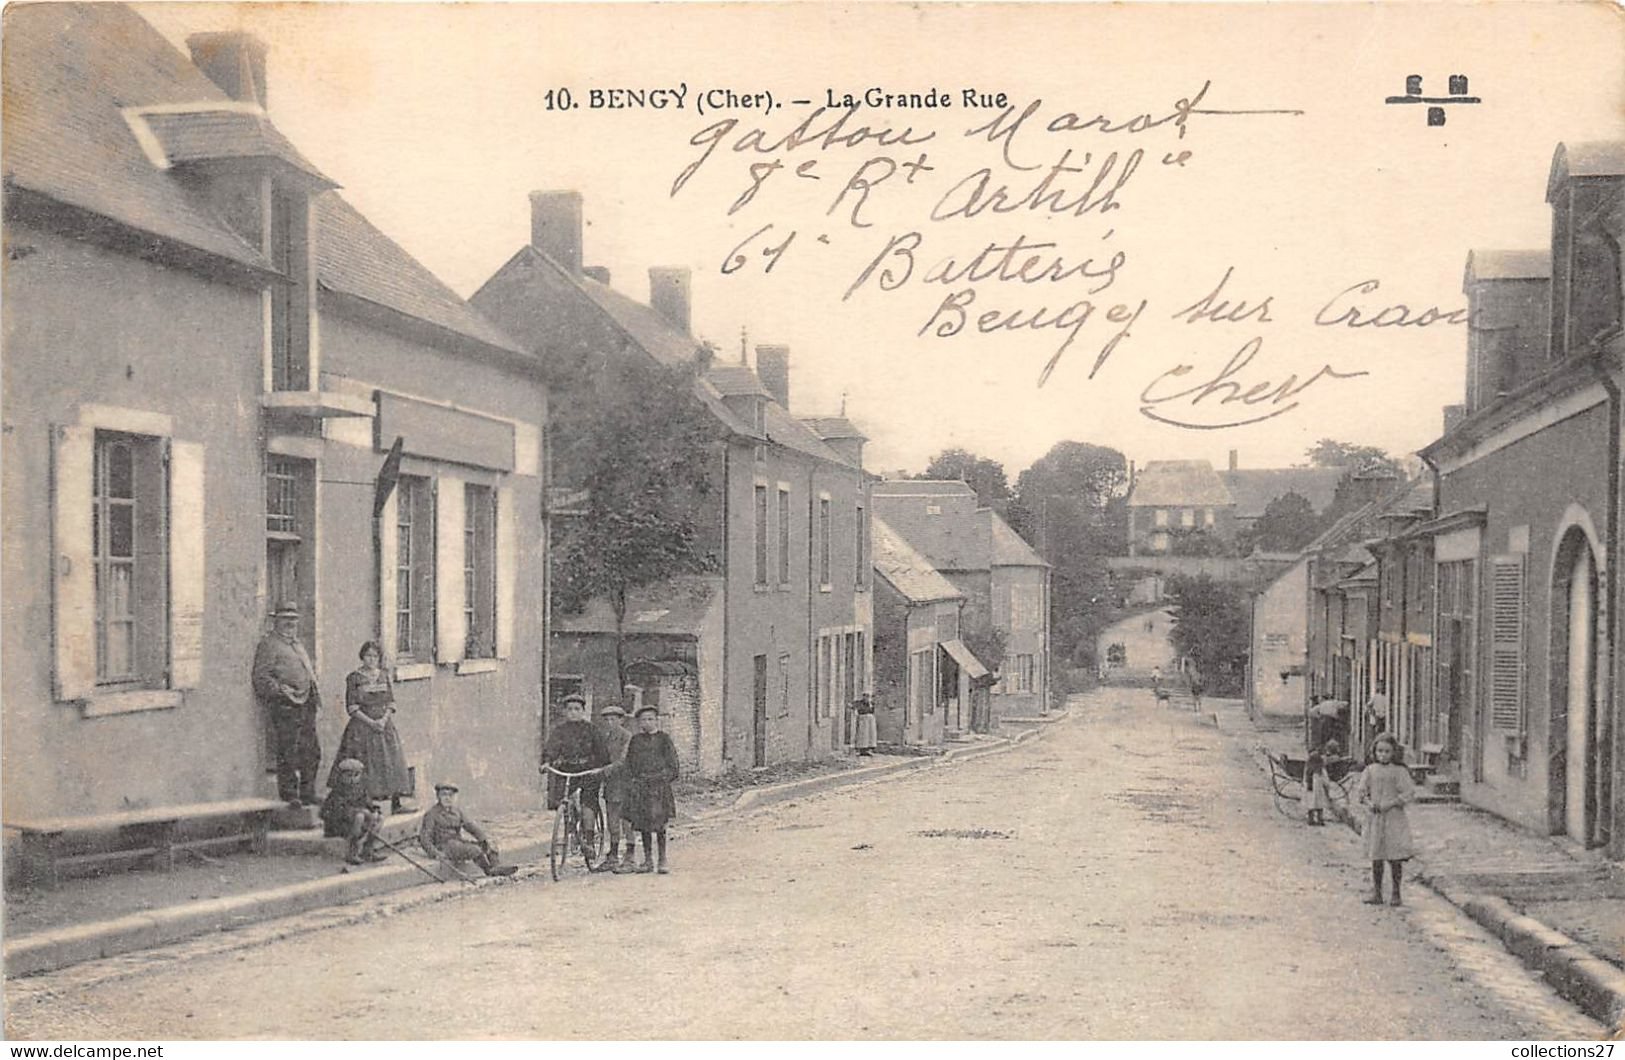 10. BENGY (Cher). — La Grande Rue
E M
B
gaston Marot
8e Rt Artillie
61e Batterie
Bengy sur Craon
Cher
collections27